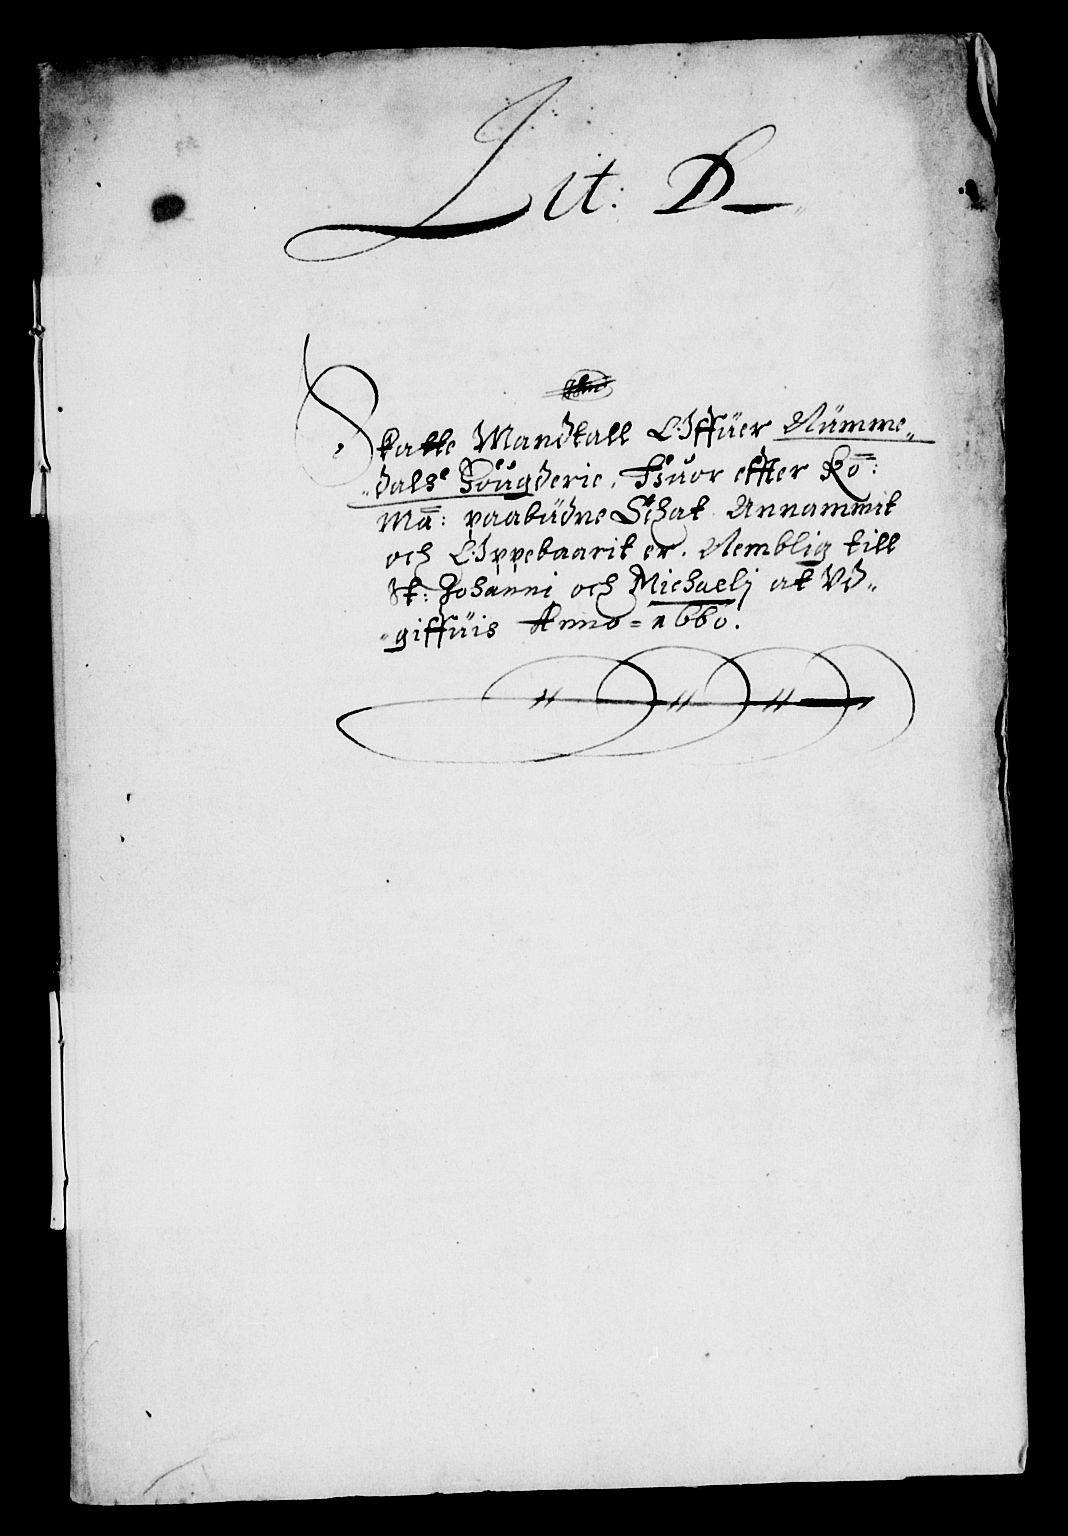 Lit: D
Skatte Mandtall Offüer Nümme„
„dals Fougderie, Huor effter Ko:
Ma: paabüdne Schat Annammit
och Oppebaarit er. Nemblig till
St: Johanni och Michaelj at Vd„
„giffüis Anno = 1660.